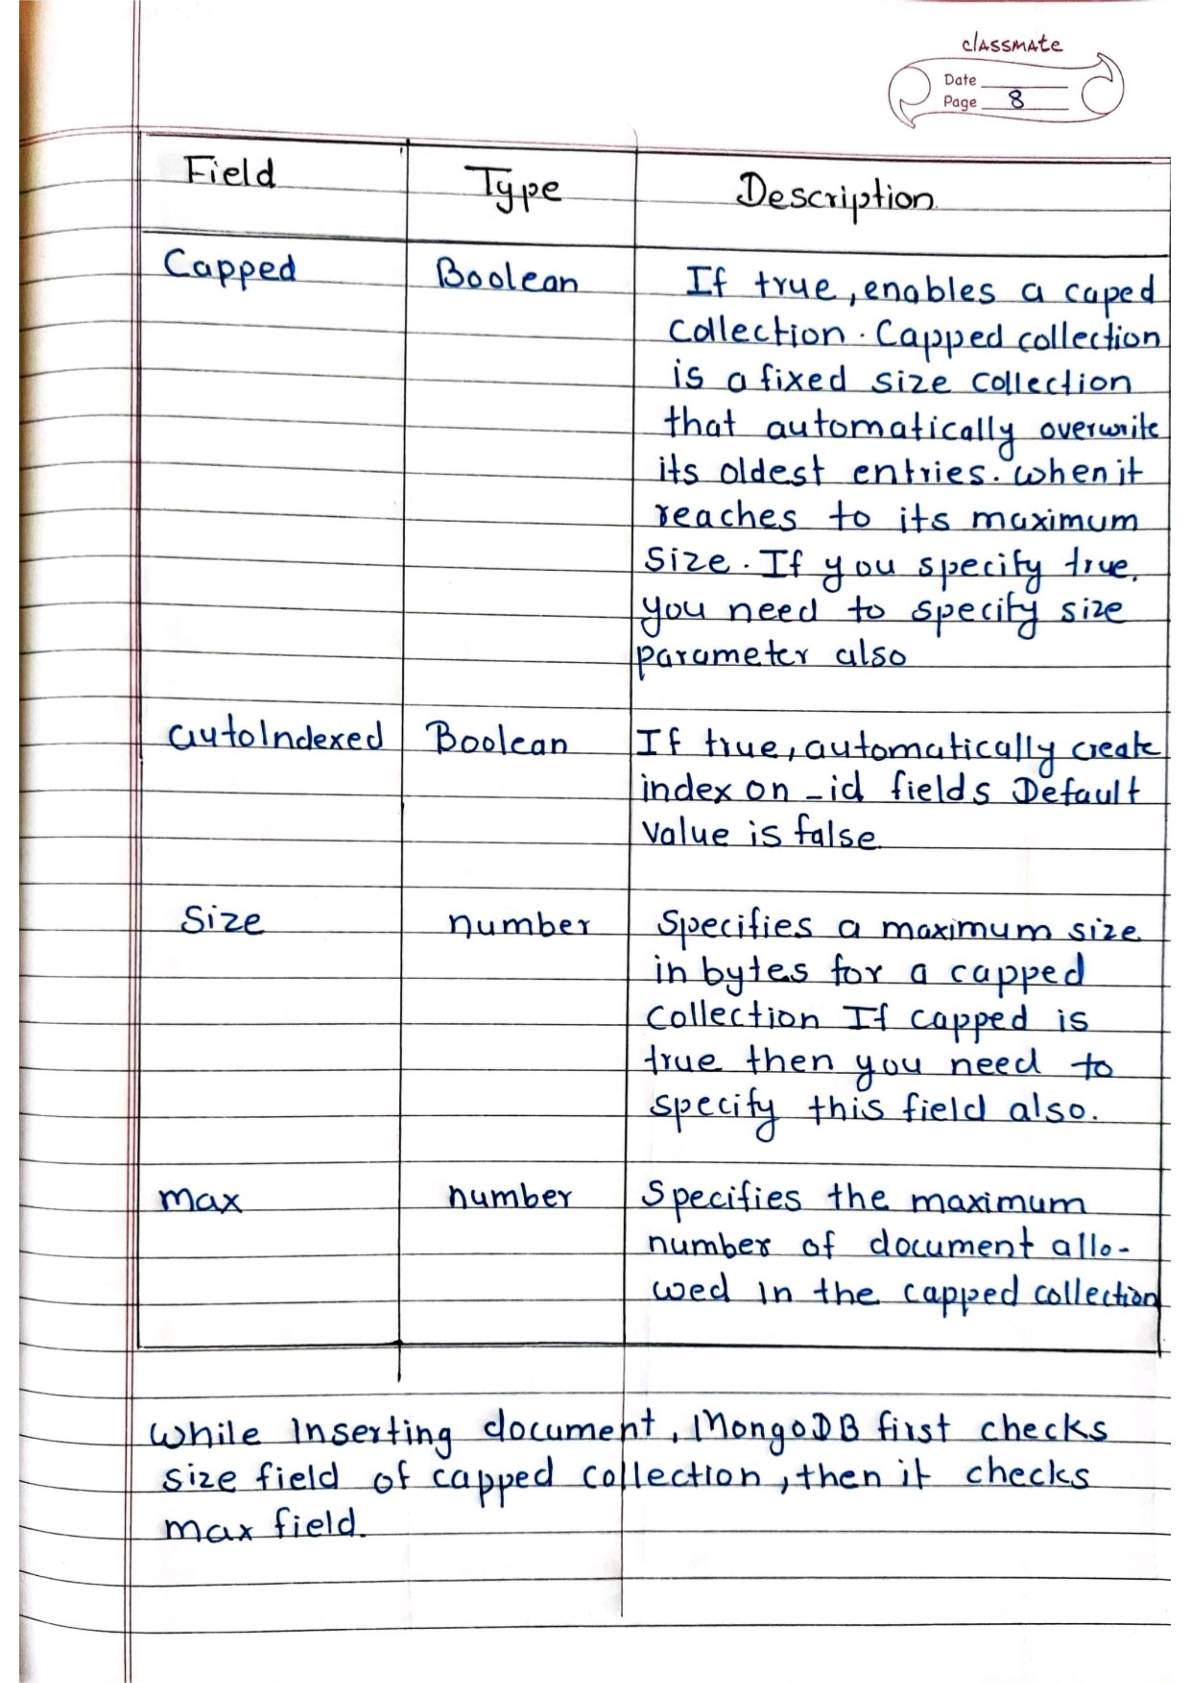 classmate
Date
Page 8
Field Type Description
Capped Boolean If true, enables a caped
collection. Capped collection
is a fixed size collection
that automatically overwrite
its oldest entries. when it
reaches to its maximum
size. If you specify true.
you need to specify size
parameter also
autoIndexed Boolean If true, automatically create
index on _id fields Default
value is false.
Size number Specifies a maximum size
in bytes for a capped
collection If capped is
true then you need to
specify this field also.
max number Specifies the maximum
number of document allo-
wed in the capped collection
while Inserting document, MongoDB first checks
size field of capped collection, then it checks
max field.